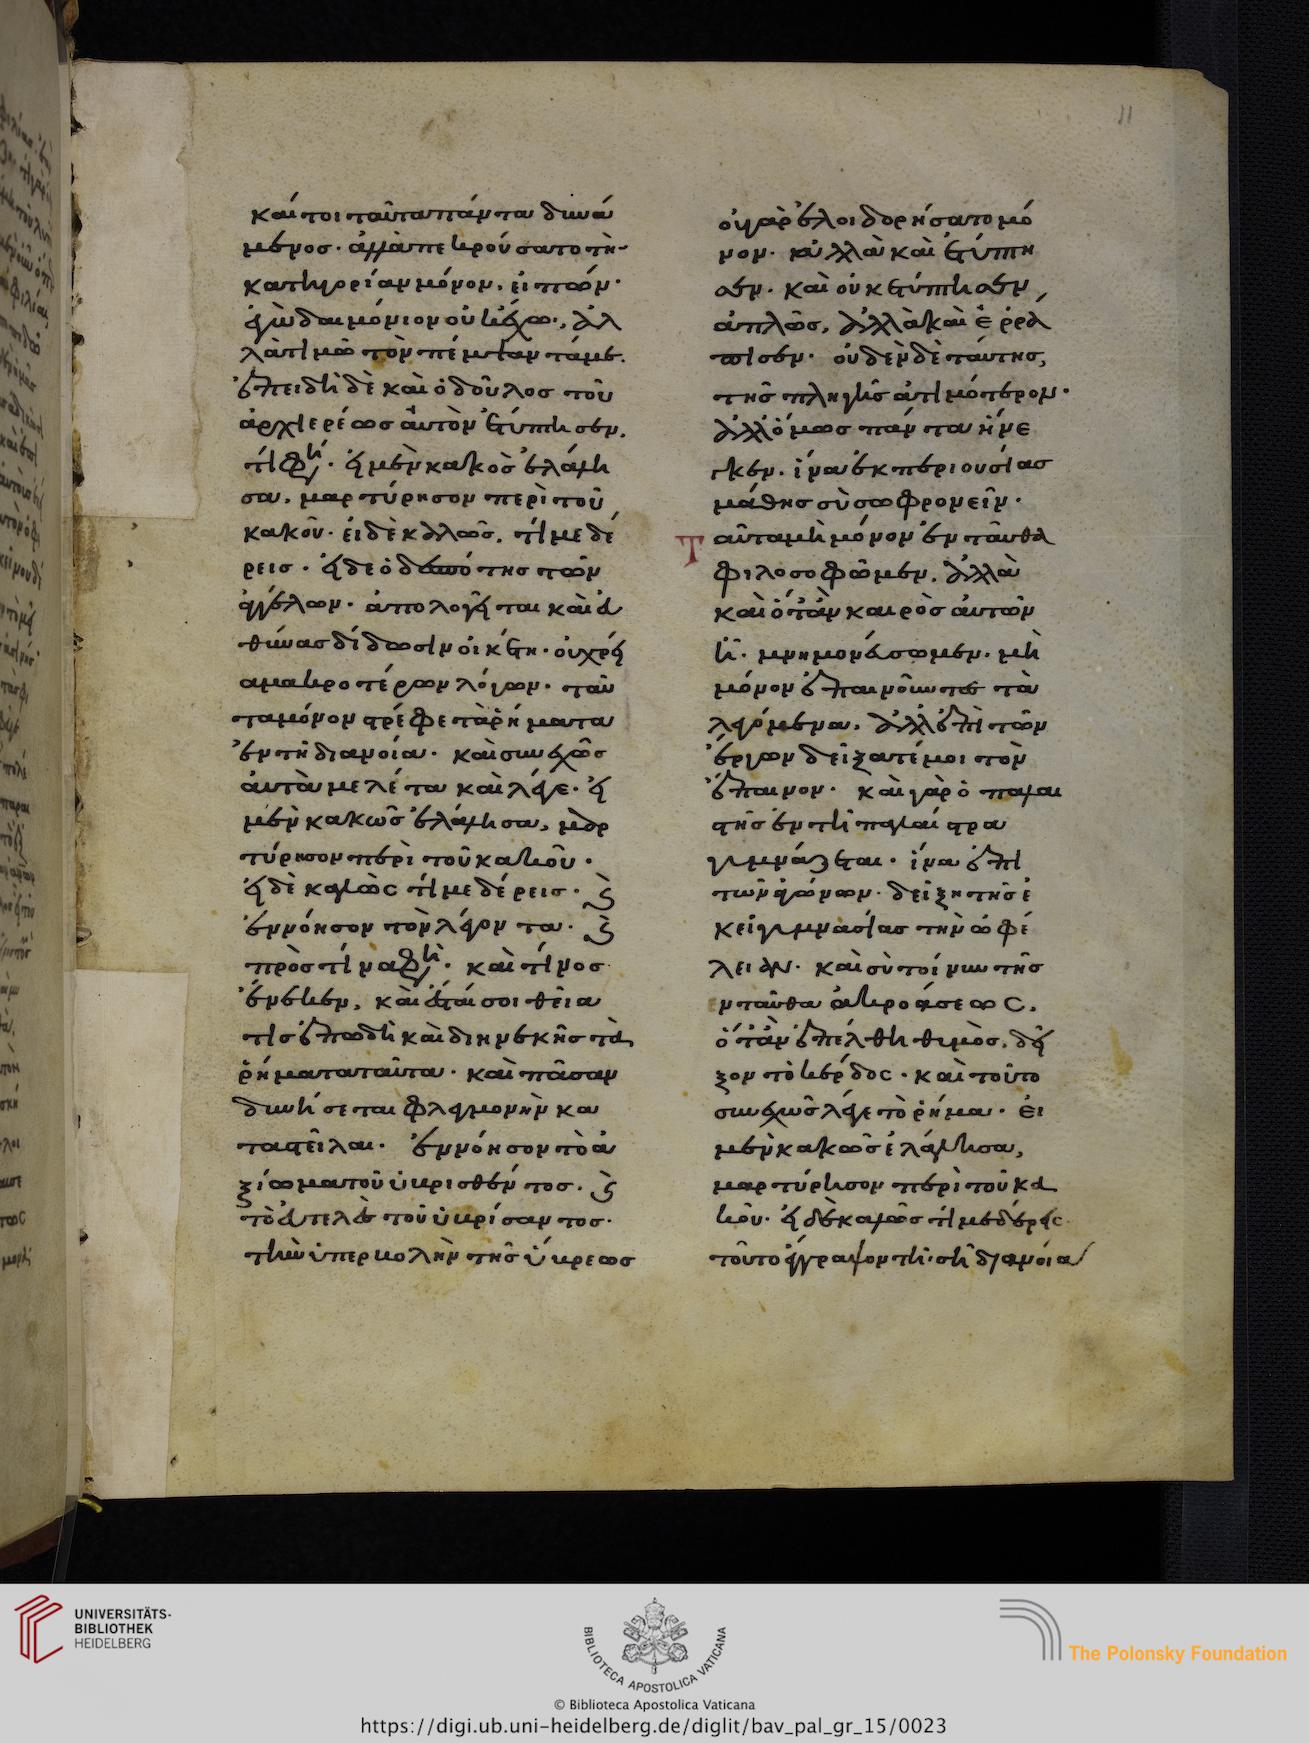 11
καίτοι ταῦτα πάντα δυνά
μενος· ἀλλ' ἀπεκρούσατο τὴν
κατηγορίαν μόνον, εἰπών·
ἐγὼ δαιμόνιον οὐκ ἔχω, ἀλ
λὰ τιμῶ τὸν πέμψαντά με.
ἐπειδὴ δὲ καὶ ὁ δοῦλος τοῦ
ἀρχιερέως αὐτὸν ἐτύπτησεν,
τί φησι· εἰ μὲν κακῶς ἐλάλη
σα, μαρτύρησον περὶ τοῦ
κακοῦ· εἰ δὲ καλῶς, τί με δέ
ρεις· εἰ δὲ ὁ δεσπότης τῶν
ἀγγέλων· ἀπολογεῖται καὶ εὐ
θύνας δίδωσιν οἰκέτη· οὐ χρεί
α μακροτέρων λόγων· ταῦ
τα μόνον στρέφε τὰ ῥήματα
ἐν τῇ διανοία· καὶ συνεχῶς
αὐτὰ μελέτα καὶ λέγε· εἰ
μὲν κακῶς ἐλάλησα, μαρ
τύρησον περὶ τοῦ κακοῦ·
εἰ δὲ καλῶς τί με δέρεις· καὶ
ἐννόησον τὸν λέγοντα· καὶ
πρὸς τίνα φησί· καὶ τίνος
ἕνεκεν, καὶ ἔσται σοι θεία
τις ἐπωδὴ καὶ διηνεκὴς τὰ
ῥήματα ταῦτα· καὶ πᾶσαν
δυνήσεται φλεγμονὴν κα
ταστεῖλαι· ἐννόησον τὸ ἀ
ξίωμα τοῦ ὑβρισθέντος· καὶ
τὸ εὐτελὲς τοῦ ὑβρίσαντος·
τὴν ὑπερβολὴν τῆς ὕβρεως
οὐ γὰρ ἐλοιδορήσατο μό
νον· ἀλλὰ καὶ ἐτύπτη
σεν· καὶ οὐκ ἐτύπτησεν
ἁπλῶς, ἀλλὰ καὶ ἐρρά
πισεν· οὐδὲν δὲ ταύτης,
τῆς πληγῆς ἀτιμότερον·
ἀλλ' ὅμως πάντα ἤνε
γκεν· ἵνα ἐκ περιουσίας
μάθης σὺ σωφρονεῖν·
Ταῦτα μὴ μόνον ἐνταῦθα
φιλοσοφῶμεν, ἀλλὰ
καὶ ὅταν καιρὸς αὐτῶν
ἦ· μνημονεύσωμεν· μὴ
μόνον ἐπαινοῦντες τὰ
λεγόμενα, ἀλλ' ἐπὶ τῶν
ἔργων δείξατέ μοι τὸν
ἔπαινον· καὶ γὰρ ὁ παλαι
στὴς ἐν τῆ παλαίστρα
γυμνάζεται· ἵνα ἐπὶ
τῶν ἀγώνων· δείξη τῆς ἐ
κεῖ γυμνασίας τὴν ὠφέ
λειαν· καὶ σὺ τοίνυν τῆς
ἐνταῦθα ἀκροάσεως,
ὅταν ἐπέλθη θυμὸς, δεῖ
ξον τὸ κέρδος· καὶ τοῦτο
συνεχῶς λέγε τὸ ῥῆμα· εἰ
μὲν κακῶς ἐλάλησα,
μαρτύρησον περὶ τοῦ κα
κοῦ· εἰ δὲ καλῶς τί με δέρεις·
τοῦτο ἔγγραψον τῆ σῆ διανοία
UNIVERSITÄTS-
BIBLIOTHEK
HEIDELBERG
BIBLIOTECA APOSTOLICA VATICANA
The Polonsky Foundation
© Biblioteca Apostolica Vaticana
https://digi.ub.uni-heidelberg.de/diglit/bav_pal_gr_15/0023